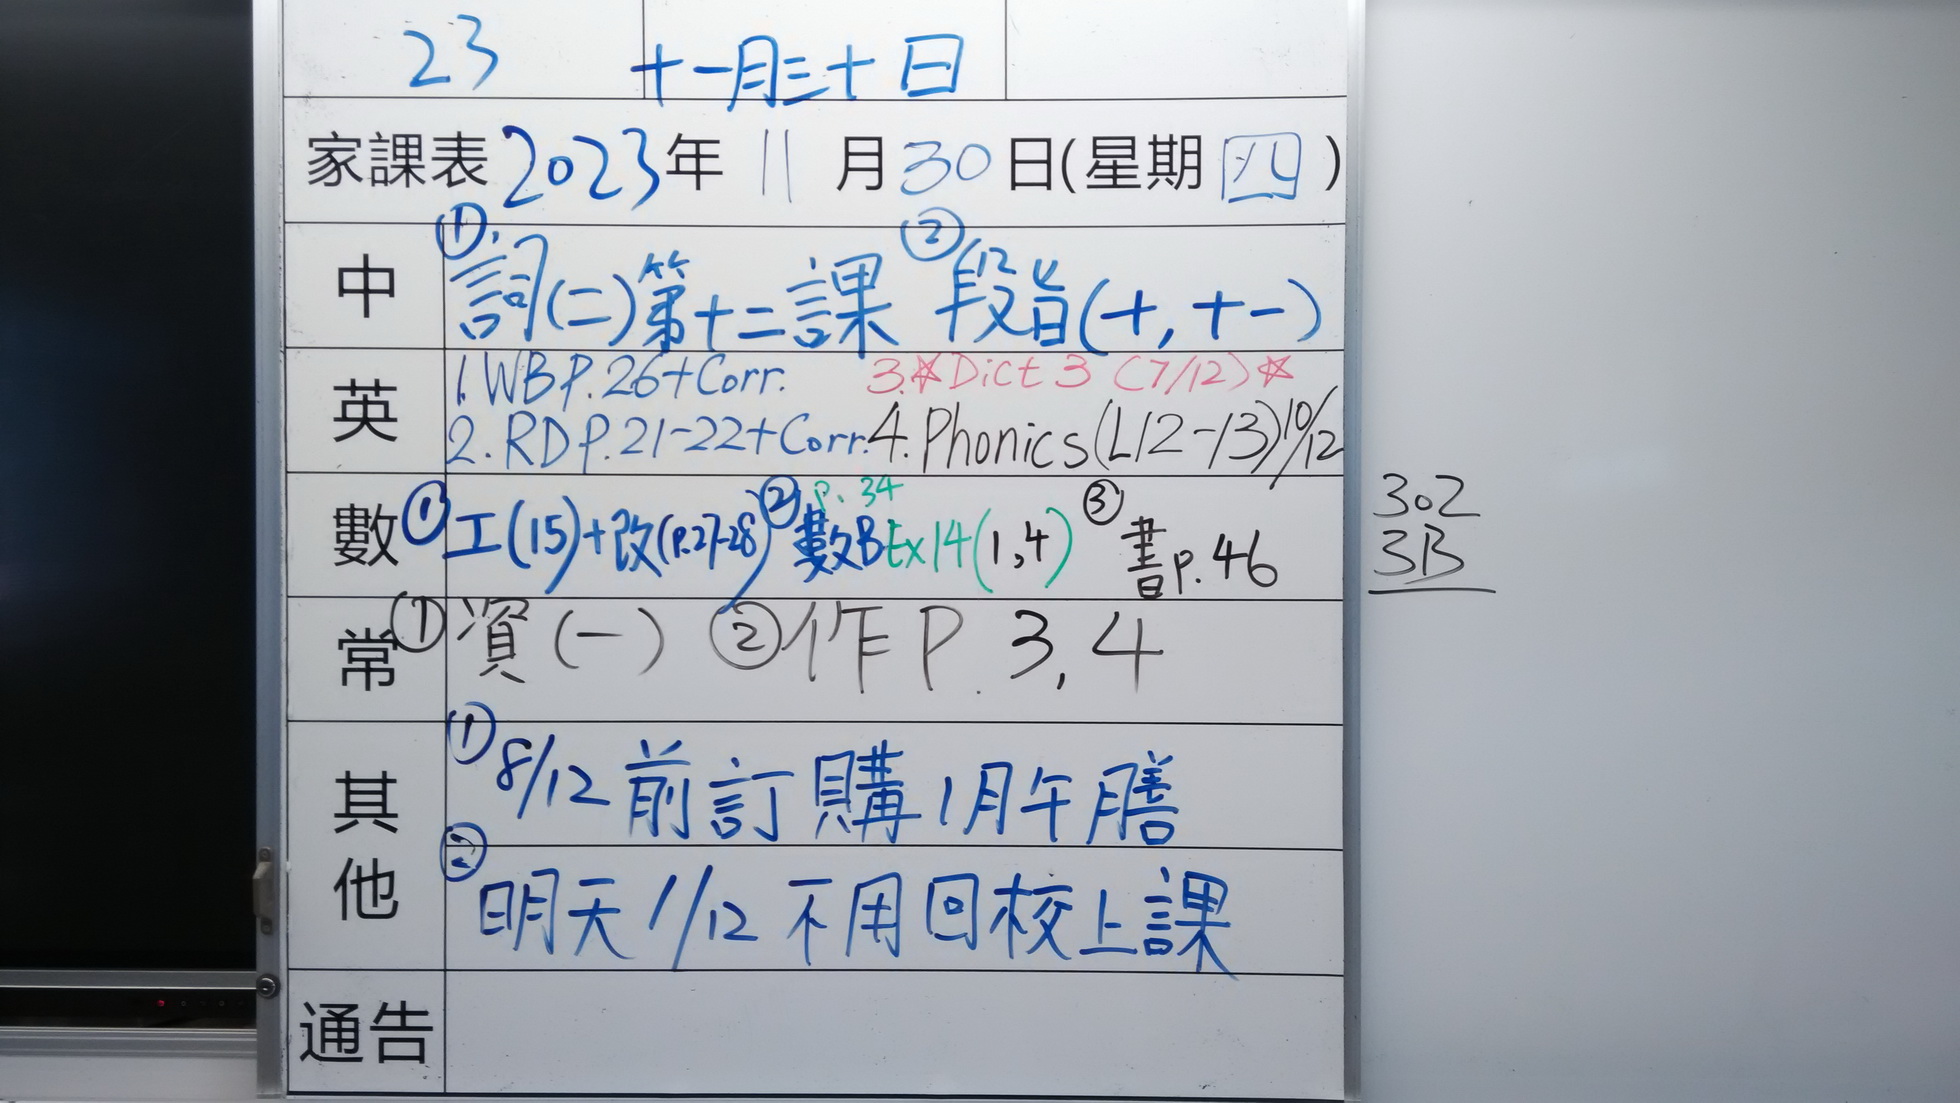 23 十一月三十日
家課表 2023年 11 月 30 日(星期 四 )
中 ① 詞(二)第十二課 ② 段旨(十, 十一)
英 1. WB P.26+Corr. 3.☆Dict 3 (7/12)☆
2. RD P.21-22+Corr. 4. Phonics(L12-13)10/12
數 ① 工(15)+改(P.27-28) ② 數B Ex14(1,4) p.34 ③ 書p.46
302
3B
常 ① 資(一) ② 作 P. 3, 4
其他 ① 8/12 前訂購1月午膳
② 明天 1/12 不用回校上課
通告